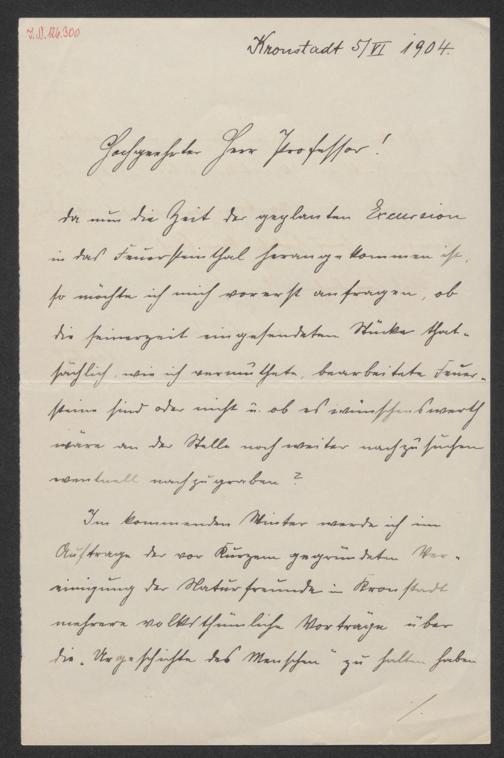 J.N. 126.300
Kronstadt 5/VI 1904.
Hochgeehrter Herr Professor!
da nun die Zeit der geplanten Excursion
in das Feuersteinthal herangekommen ist,
so möchte ich mich vorerst anfragen, ob
die seinerzeit eingesendeten Stücke that-
sächlich, wie ich vermuthete, bearbeitete Feuer-
steine sind oder nicht u. ob es wünschenswerth
wäre an der Stelle noch weiter nachzusuchen
eventuell nachzugraben?
Im kommenden Winter werde ich im
Auftrage der vor Kurzem gegründeten Ver-
einigung der Naturfreunde in Kronstadt
mehrere volksthümliche Vorträge über
die „Urgeschichte des Menschen" zu halten haben
./.